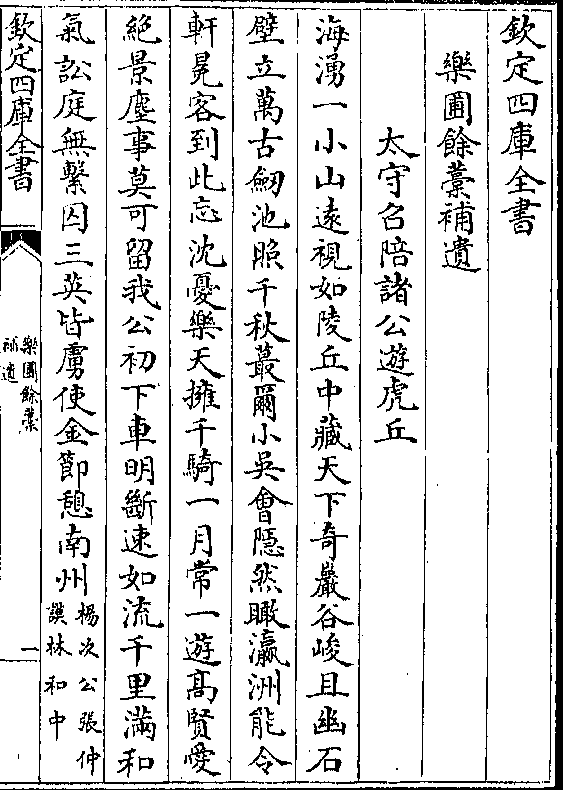 欽定四庫全書
樂圃餘藁補遺
太守召陪諸公遊虎丘
海湧一小山遠視如陵丘中藏天下奇巖谷峻且幽石
壁立萬古劒池照千秋蕞爾小吳會隠然瞰瀛洲能令
軒冕客到此忘沈憂樂天擁千騎一月常一遊髙賢愛
絶景塵事莫可留我公初下車明斷速如流千里滿和
氣訟庭無繫囚三英皆膚使金節憩南州
楊次公張仲
謨林和中
欽定四庫全書
樂圃餘藁
補遺
一